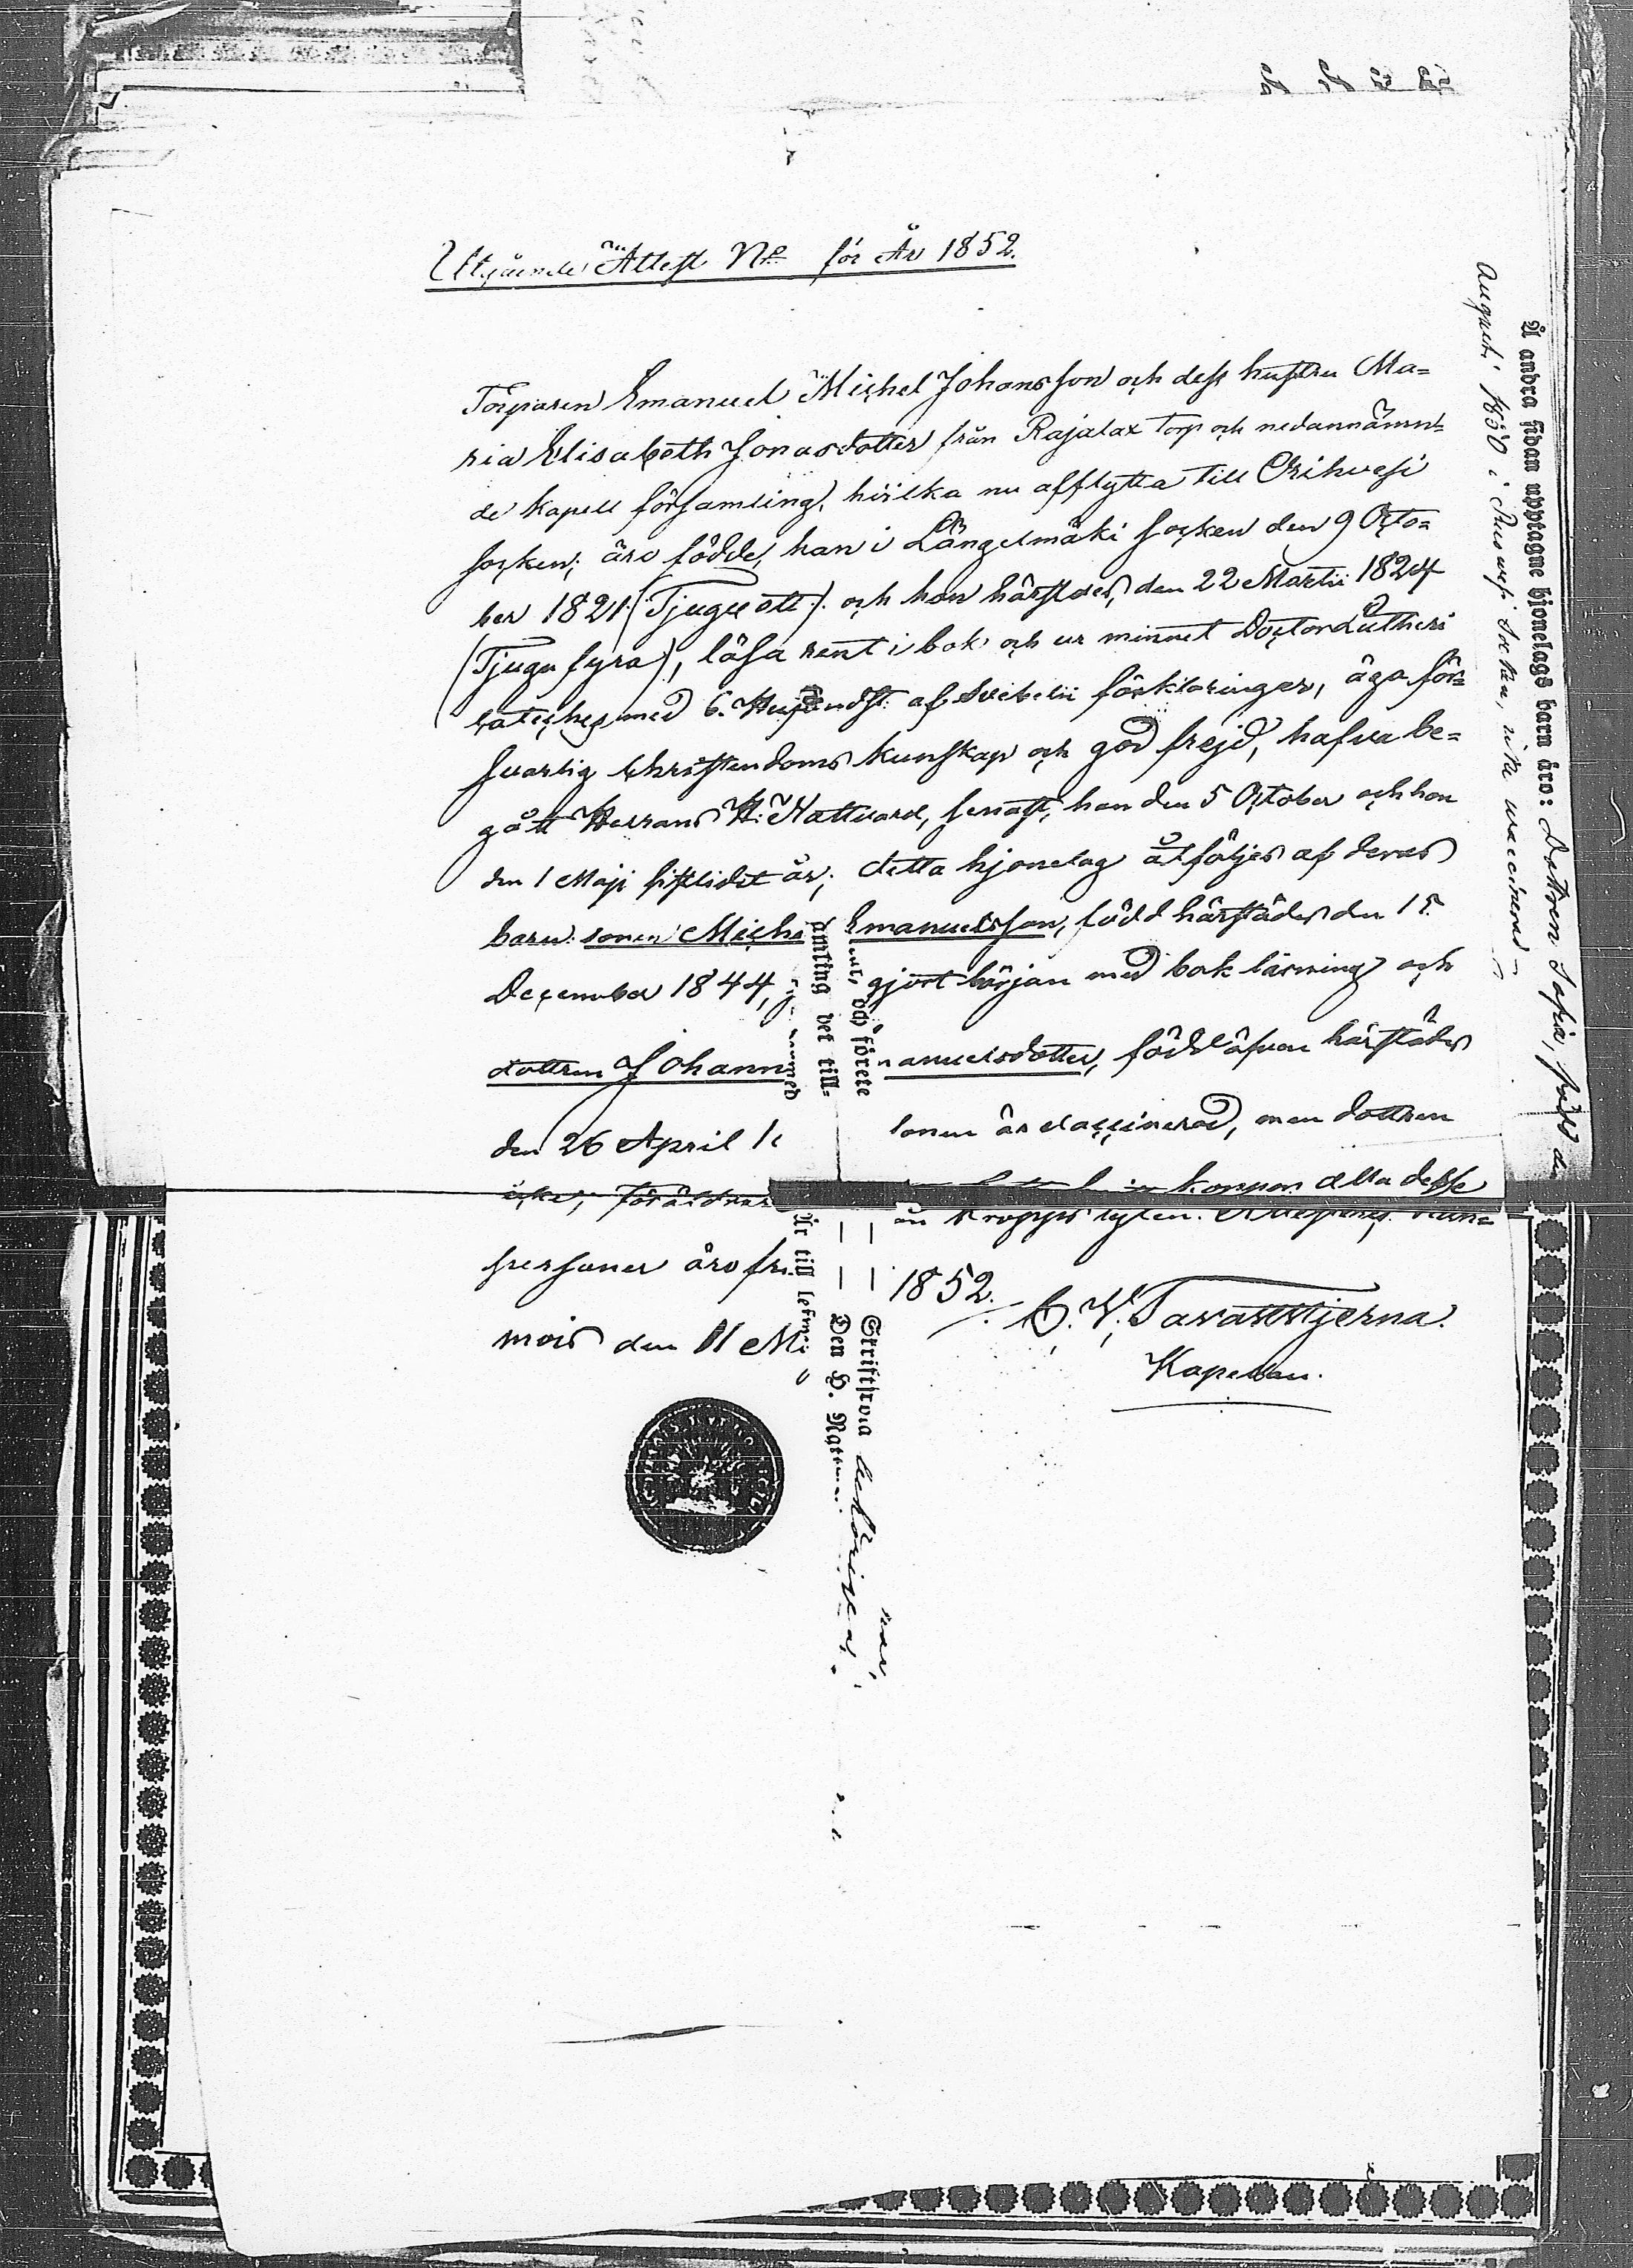 Utgående Attest No för År 1852.
Torparen Emanuel Michel Johansson och dess hustru Ma=
ria Elisabeth Jonasdotter från Rajalax Torp och nedannämn=
de Kapell församling, hvilka nu afflytta till Orihvesi
socken; äro födde, han i Längelmäki socken den 9 Octo=
ber 1821 (Tjuguett) och hon härstädes, den 22 Martii 1824
(Tjugu fyra), läsa rent i bok och ur minnet Doctor Lutheri
cateches med 6. Hufvudst. af Svebelii förklaringar, äga för=
svarlig Christendoms kunskap och god frejd, hafva be=
gått Herrans H. Nattvard, senast, han den 5 October och hon
den 1 Maji sistlidet år; detta hjonelag åtföljes af deras
barn: sonen Miche Emanuelsson, född härstädes den 15
December 1844, gjort början med bok läsning och
dottren Johann anuelsdotter, född äfven härstädes
den 26 April 1 sonen är vaccinerad, men dottren
icke; föräldrar koppor alla desse
personer äro fri ån kropps lyten.
mois den 11 M 1852.
C. W. Tavaststjerna.
Kapellan.
Å andra sidan upptagne hjonelags barn äro: Dottren Sofia, född den
Augusti 1850 i socken, icke vaccinerad
och förete
amling det till=
med
Skriftskola
Den H. Nattv
År till